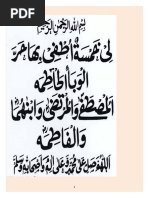 بسم الله الرحمن الرحيم
لى خمسة أطفى بها حر
الوبا الحاطمه
المصطفى والمرتضى وابنهما
والفاطمه
اللهم صل على محمد وعلى اله واصحابه وسلم
1